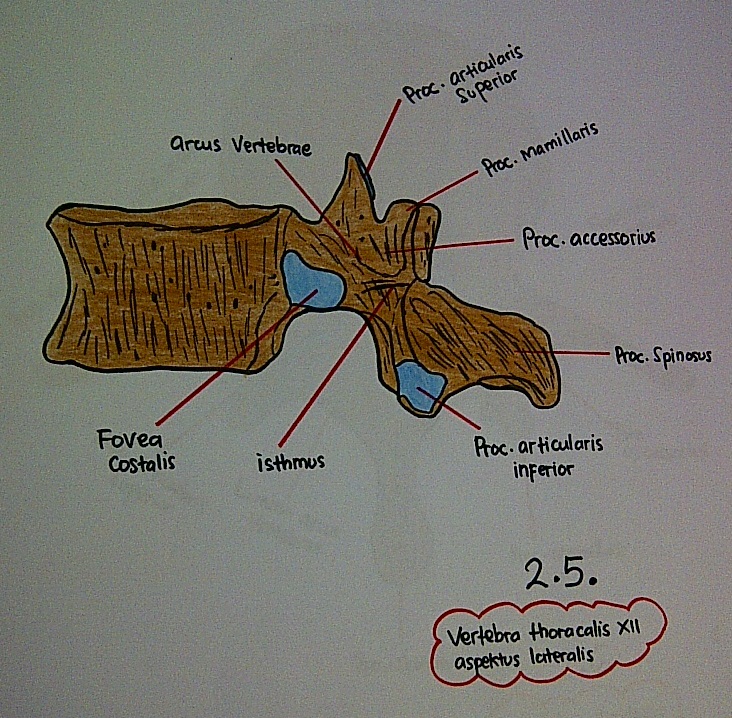 Proc. articularis
Superior
arcus Vertebrae
Proc. Mamillaris
Proc. accessorius
Proc. Spinosus
Fovea
Costalis
isthmus
Proc. articularis
inferior
2.5.
Vertebra thoracalis XII
aspektus lateralis